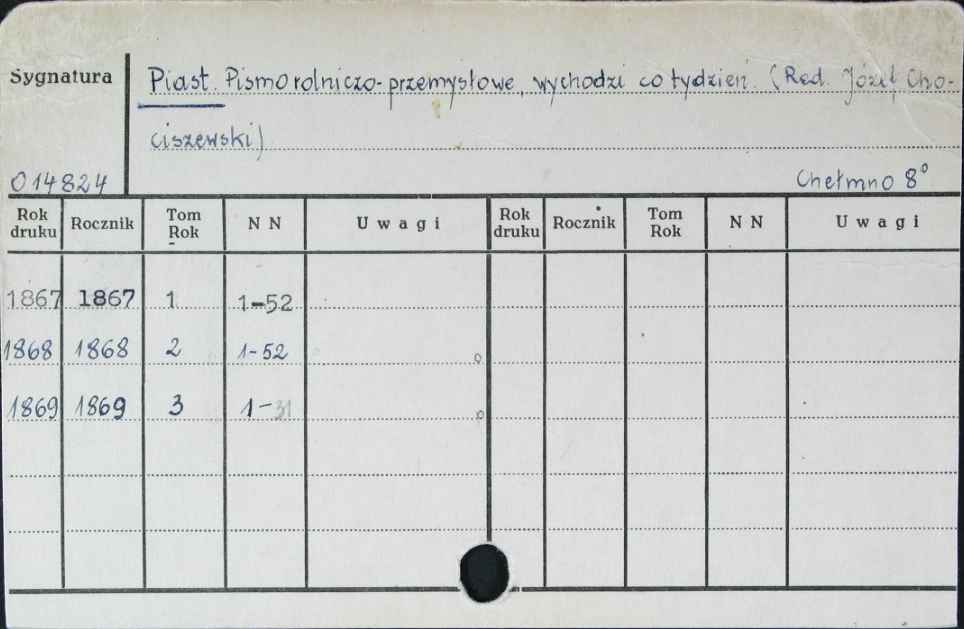 Sygnatura
Piast. Pismo rolniczo-przemysłowe, wychodzi co tydzień. (Red. Józef Cho-
ciszewski)
014824
Chełmno 8°
Rok druku Rocznik Tom Rok N N Uwagi Rok druku Rocznik Tom Rok N N Uwagi
1867 1867 1 1-52
1868 1868 2 1-52
1869 1869 3 1-31